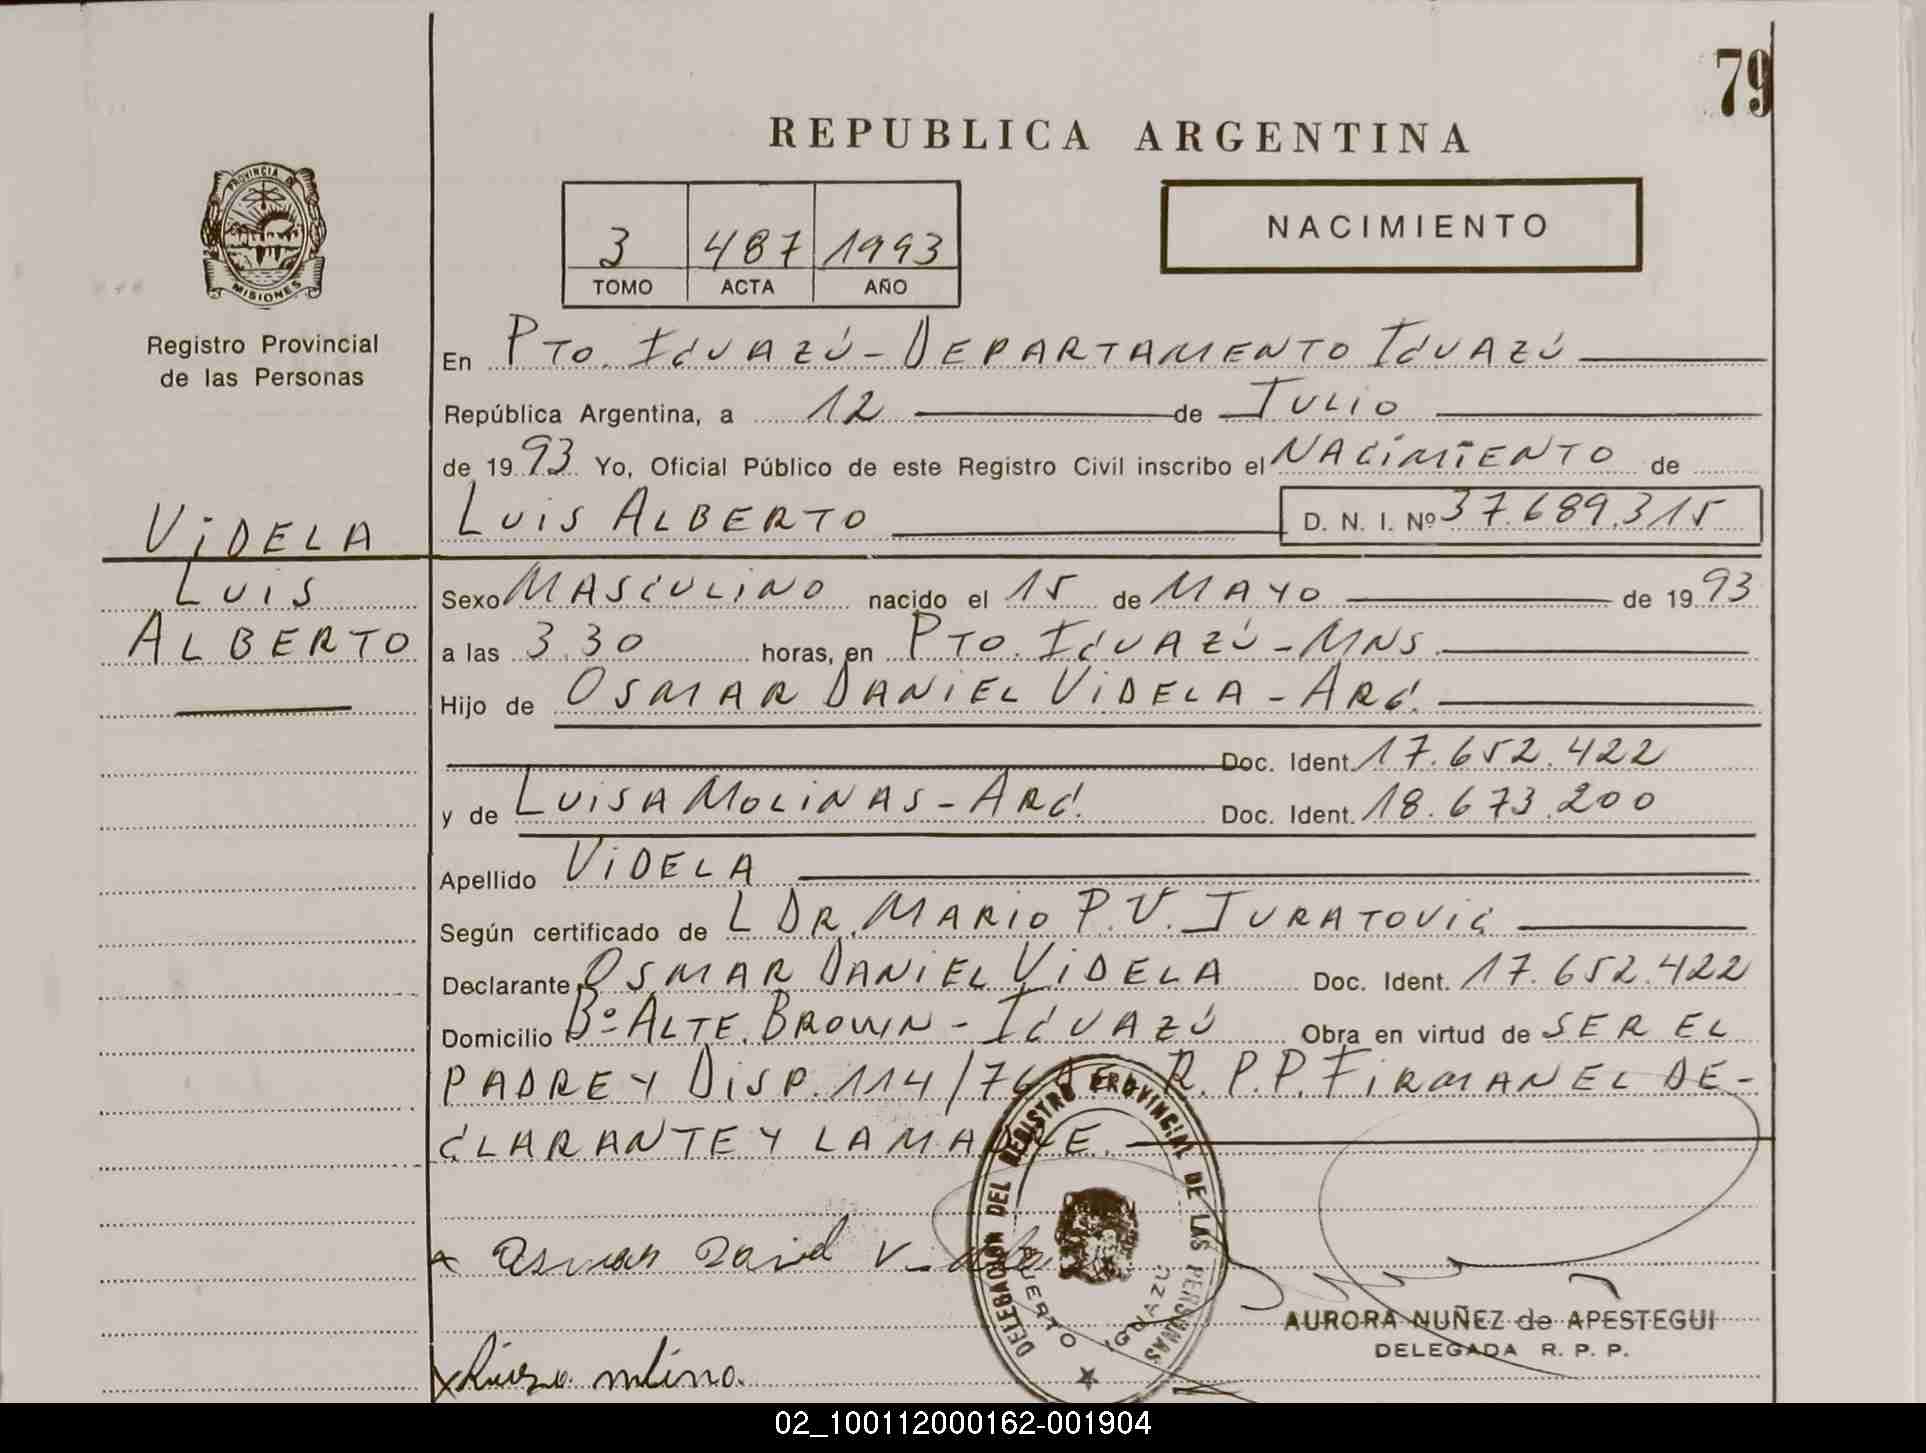 79
REPUBLICA ARGENTINA
PROVINCIA DE
MISIONES
Registro Provincial
de las Personas
3 487 1993
TOMO ACTA AÑO
NACIMIENTO
En PTO. IGUAZÚ - DEPARTAMENTO IGUAZÚ
República Argentina, a 12 de JULIO
de 1993 Yo, Oficial Público de este Registro Civil inscribo el NACIMIENTO de
LUIS ALBERTO D. N. I. Nº 37.689.315
VIDELA
LUIS
ALBERTO
Sexo MASCULINO nacido el 15 de MAYO de 1993
a las 3.30 horas, en PTO. IGUAZÚ - MNS.
Hijo de OSMAR DANIEL VIDELA - ARG.
Doc. Ident. 17.652.422
y de LUISA MOLINAS - ARG. Doc. Ident. 18.673.200
Apellido VIDELA
Según certificado de L DR. MARIO P. V. JURATOVIC
Declarante OSMAR DANIEL VIDELA Doc. Ident. 17.652.422
Domicilio Bº ALTE. BROWN - IGUAZÚ Obra en virtud de SER EL
PADRE Y DISP. 114/76 DEL R. P. P. FIRMAN EL DE-
CLARANTE Y LA MADRE.
DELEGACION DEL REGISTRO PROVINCIAL DE LAS PERSONAS
PUERTO IGUAZU
AURORA NUÑEZ de APESTEGUI
DELEGADA R. P. P.
02_100112000162-001904